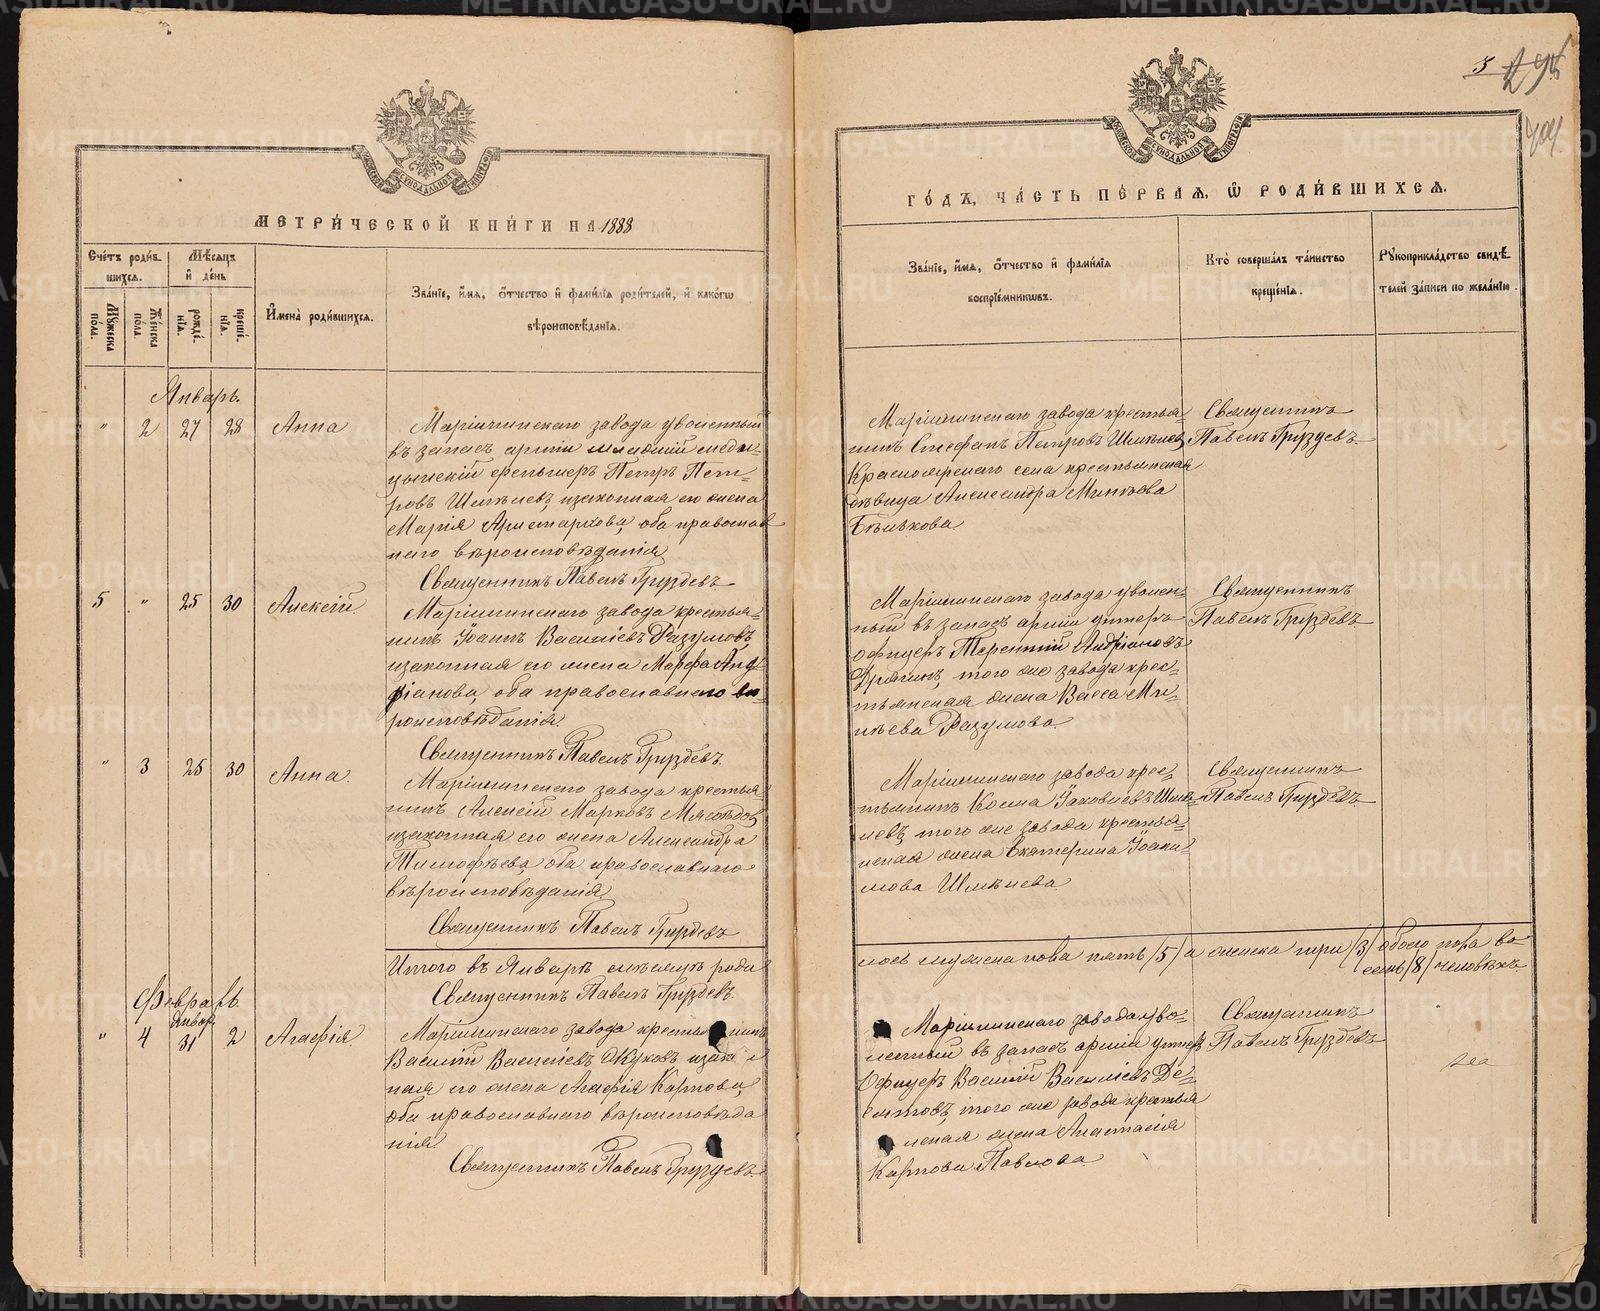 МЕТРИ́ЧЕСКОЙ КНИ́ГИ НА 1888
Счетъ роди́в-
шихся.
Мѣсяцъ
и҆ де́нь
Мꙋ́жеска
пола.
Же́нска
по́ла.
рожде́-
нїѧ.
креще́-
нїѧ.
И҆мена̀ роди́вшихсѧ.
Зва́нїе, и҆́мѧ, ѻ҆́тчество и҆ фами́лїѧ роди́телей, и҆ како́гѡ
вѣроисповѣ́данїѧ.
Январь.
" 2 27 28 Анна
Маріинскаго завода уволенный
въ запасъ арміи младшій меди-
цынскій фельшеръ Петръ Пет-
ровъ Шмелевъ, изаконная его жена
Марія Аристархова, оба православ
наго вѣроисповѣданія
Священникъ Павелъ Груздевъ
5 " 25 30 Алексій
Маріинскаго завода крестья-
нинъ Іоаннъ Василіевъ Разумовъ,
изаконная его жена Марфа Анд-
ріанова, оба православнаго вѣ-
роисповѣданія.
Священникъ Павелъ Груздевъ.
" 3 25 30 Анна.
Маріинскаго завода крестья-
нинъ Алексій Марковъ Мясоѣдов,
изаконная его жена Александра
Тимофѣева, оба православнаго
вѣроисповѣданія.
Священникъ Павелъ Груздевъ
Итого въ Январѣ мѣсяцѣ роди
Священникъ Павелъ Груздевъ.
Февраль.
Январ.
" 4 31 2 Агафія
Маріинскаго завода крестьянинъ
Василій Василіевъ Жуковъ, изако
ная его жена Агафія Карпова,
оба православнаго вѣроисповѣда
нія.
Священникъ Павелъ Груздевъ.
3 295
704
ГО́ДЪ, ЧА́СТЬ ПЕ́РВАЯ, Ѽ РОДИ́ВШИХСЯ.
Зва́нїе, и҆́мѧ, ѻ҆́тчество и҆ фами́лїѧ
воспрїе́мникѡвъ.
Кто̀ соверша́лъ та́инство
креще́нїѧ.
Рꙋкоприкла́дство свидѣ́-
телей за́писи по жела́нїю.
Маріинскаго завода крестья-
нинъ Стефанъ Петровъ Шмелевъ,
Красноярскаго села крестьянская
дѣвица Александра Минѣева
Бѣлькова
Священникъ
Павелъ Груздевъ.
Маріинскаго завода уволен-
ный въ запасъ арміи унтеръ
офицеръ Терентій Андріановъ
Дрягинъ, того же завода крес-
тьянская жена Васса Ми-
нѣева Разумова.
Священникъ
Павелъ Груздевъ
Маріинскаго завода крес-
тьянинъ Косма Іаковлевъ Шме-
левъ, того же завода крестья-
нская жена Екатерина Іоаки-
мова Шмелева
Священникъ
Павелъ Груздевъ
лось мужеска пола пять /5/ а женска три /3/ обоего пола во-
семь /8/ человѣкъ
Маріинскаго завода уво-
ленный въ запасъ арміи унтеръ
Офицеръ Василій Василіевъ Де-
ментовъ, того же завода крестья
нская жена Анастасія
Карпова Павлова.
Священникъ
Павелъ Груздевъ